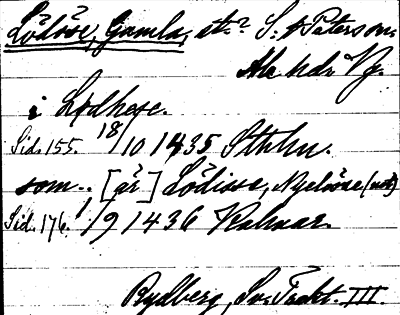 Lödöse, Gamla, st.? S:t Peters sn,
Ale hdr Vg.
i Lydhese.
Sid. 155. 18/10 1435 Sthlm.
som.. [är] Lödisse, Nyelöse (not)
Sid. 176. 1/9 1436 Kalmar.
Rydberg, Sv. Trakt. III.